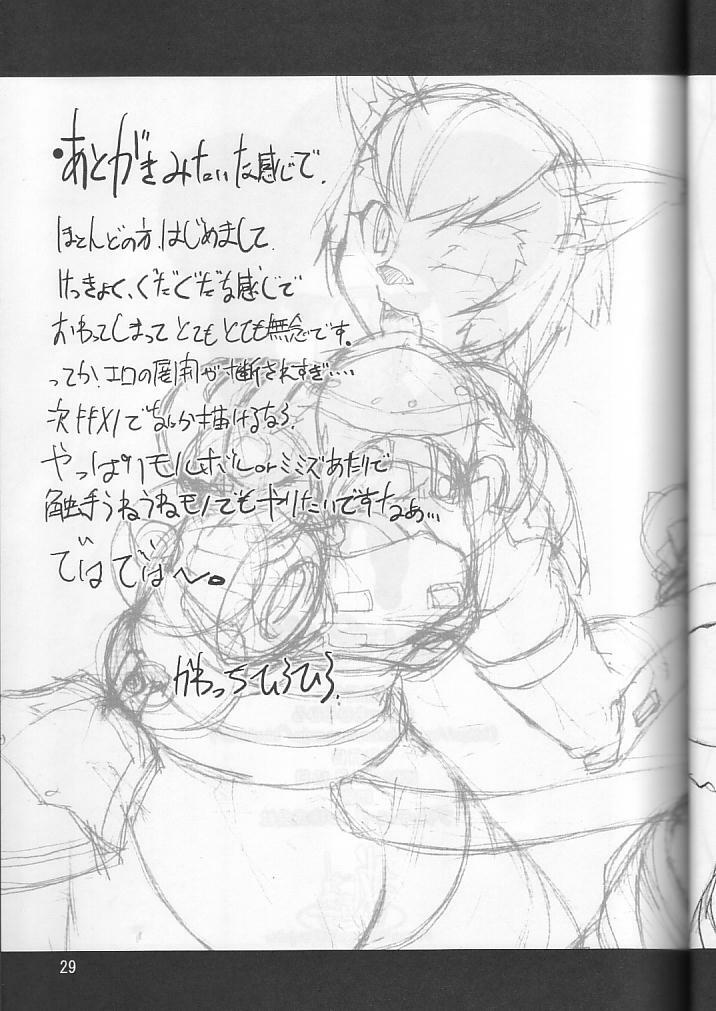 •あとがきみたいな感じで.
ほとんどの方.はじめまして.
けっきょく、ぐだぐだな感じで
おわってしまってとてもとても無念です。
ってか.エロの展開が寸断されすぎ‥‥
次FFXIでなんか描けるなら.
やっぱりモルボルorミミズあたりで
触手うねうねモノでもやりたいですなぁ…
ではでは〜。
かわっちひろひろ.
29